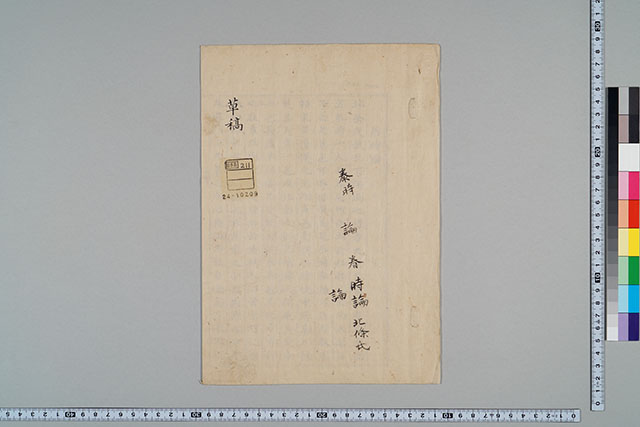 北條氏
泰時論
春時論
論
草稿
211
24-10209